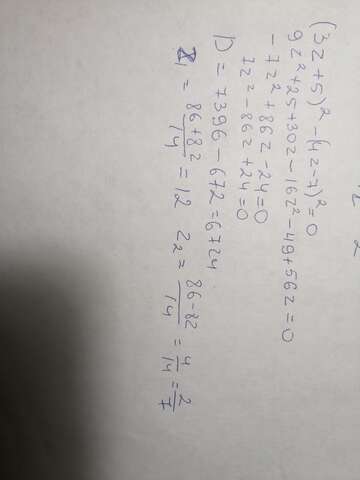 (3z+5)² - (4z-7)² = 0
9z² + 25 + 30z - 16z² - 49 + 56z = 0
- 7z² + 86z - 24 = 0
7z² - 86z + 24 = 0
D = 7396 - 672 = 6724
z₁ = 86+82/14 = 12 z₂ = 86-82/14 = 4/14 = 2/7